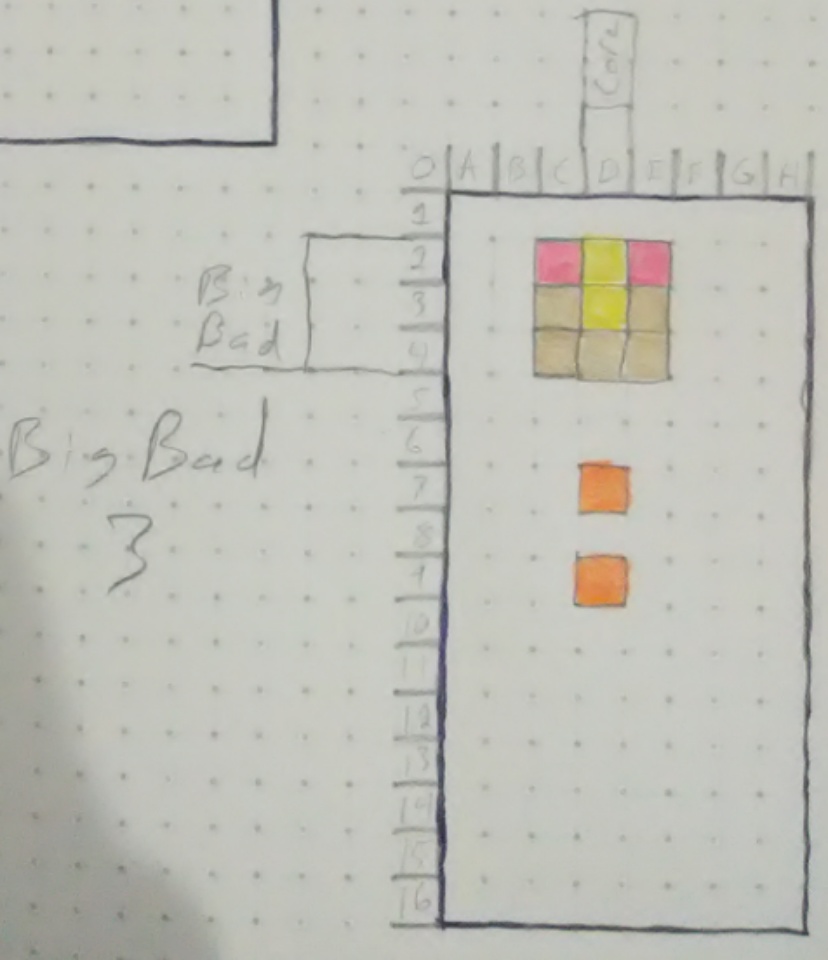 Core
0 A B C D E F G H
1
2
3
4
5
6
7
8
9
10
11
12
13
14
15
16
Big
Bad
Big Bad
3